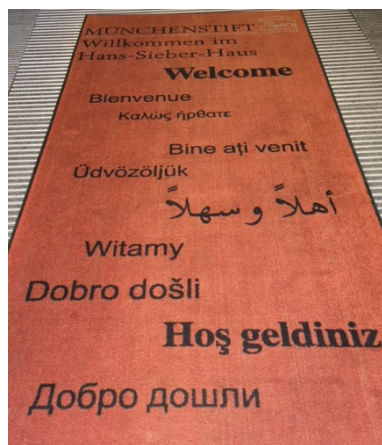 MÜNCHENSTIFT
Willkommen im
Hans-Sieber-Haus
Welcome
Bienvenue
Καλώς ήρθατε
Bine aţi venit
Üdvözöljük
أهلاً و سهلاً
Witamy
Dobro došli
Hoş geldiniz
Добро дошли